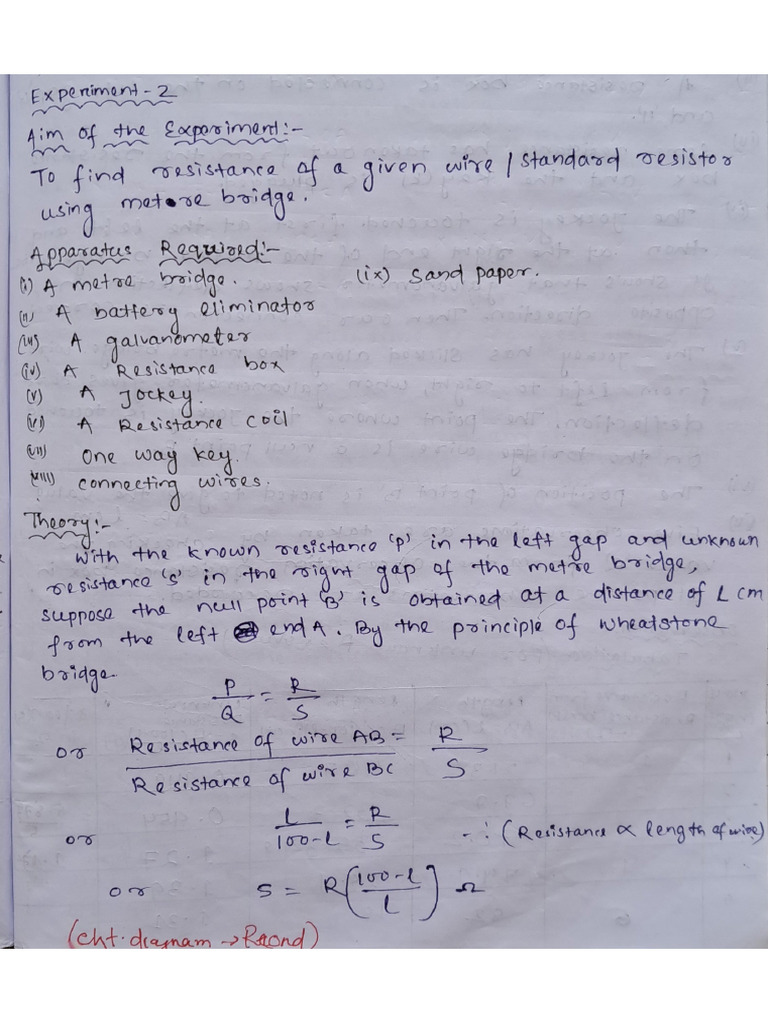 Experiment-2
Aim of the Experiment:-
To find resistance of a given wire / standard resistor
using metre bridge.
Apparatus Required:-
(i) A metre bridge.
(ix) Sand paper.
(ii) A battery eliminator
(iii) A galvanometer
(iv) A Resistance box
(v) A Jockey.
(vi) A Resistance coil
(vii) One way key.
(viii) connecting wires.
Theory:-
With the known resistance 'p' in the left gap and unknown
resistance 's' in the right gap of the metre bridge,
suppose the null point 'B' is obtained at a distance of L cm
from the left end A. By the principle of wheatstone
bridge.
P/Q = R/S
or Resistance of wire AB/Resistance of wire BC = R/S
or L/100-L = R/S ∴ (Resistance ∝ length of wire)
or S = R(100-l/L) Ω